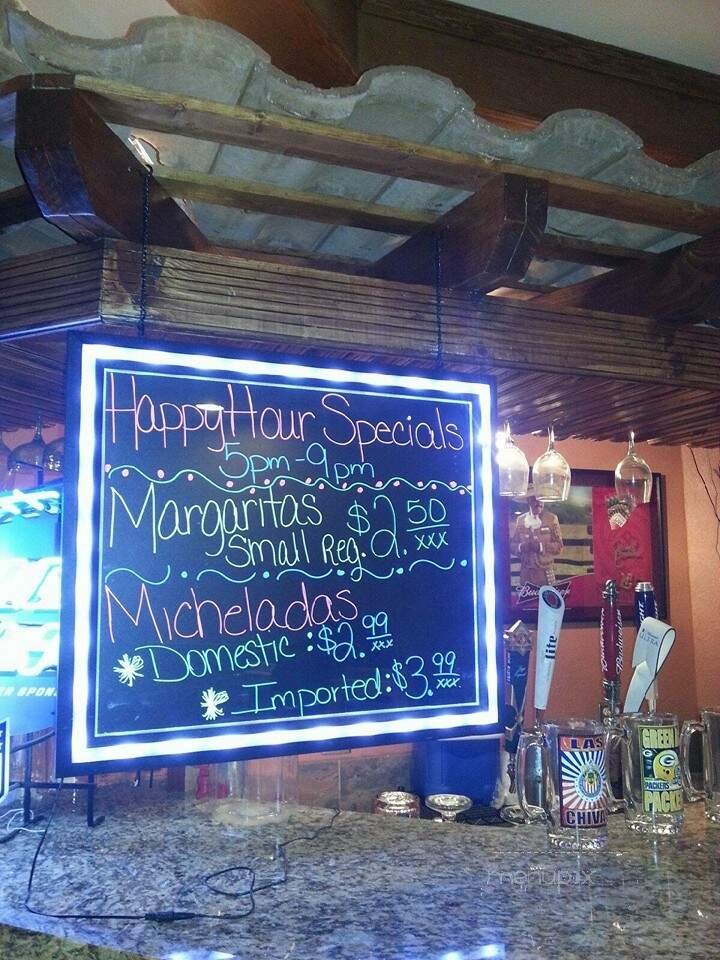 Happy Hour Specials
5pm-9pm
Margaritas $2.50
Small Reg. xxx
Micheladas
Domestic: $2.99
xxx
Imported: $3.99
xxx
lite
Budweiser
LAS
CHIVAS
GREEN
PACKERS
PACK
menupix